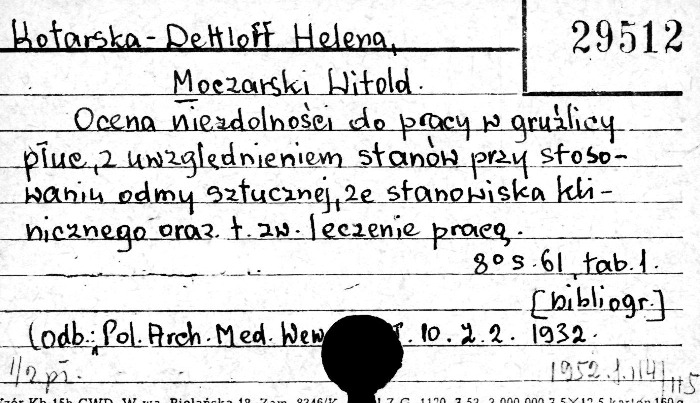 Kotarska-Dettloff Helena, 29512
Moczarski Witold.
Ocena niezdolności do pracy w gruźlicy
płuc, z uwzględnieniem stanów przy stoso-
waniu odmy sztucznej, ze stanowiska kli-
nicznego oraz t. zw. leczenie pracą.
8° s. 61, tab. 1.
[bibliogr.]
(odb.: Pol. Arch. Med. Wew. T. 10. Z. 2. 1932.
1/2 pł. 1952.J.1141/115
Wzór Kb 15b CWD, W-wa, Bielańska 18. Zam. 8346/K